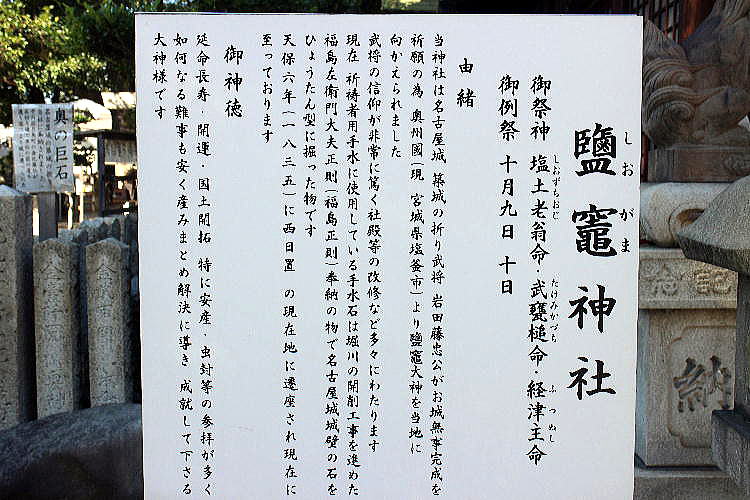 鹽竈神社
しおがま
御祭神 塩土老翁命・武甕槌命・経津主命
しおずちおじ
たけみかづち
ふつぬし
御例祭 十月九日 十日
由緒
当神社は名古屋城 築城の折り武将 岩田藤忠公がお城無事完成を
祈願の為 奥州國(現 宮城県塩釜市)より鹽竈大神を当地に
向かえられました
武将の信仰が非常に篤く社殿等の改修など多々にわたります
現在 祈祷者用手水に使用している手水石は堀川の開削工事を進めた
福島左衛門大夫正則(福島正則)奉納の物で名古屋城城壁の石を
ひょうたん型に掘った物です
天保六年(一八三五)に西日置 の現在地に遷座され現在に
至っております
御神徳
延命長寿・開運・国土開拓 特に安産・虫封等の参拝が多く
如何なる難事も安く産みまとめ解決に導き 成就して下さる
大神様です
奥の巨石
納